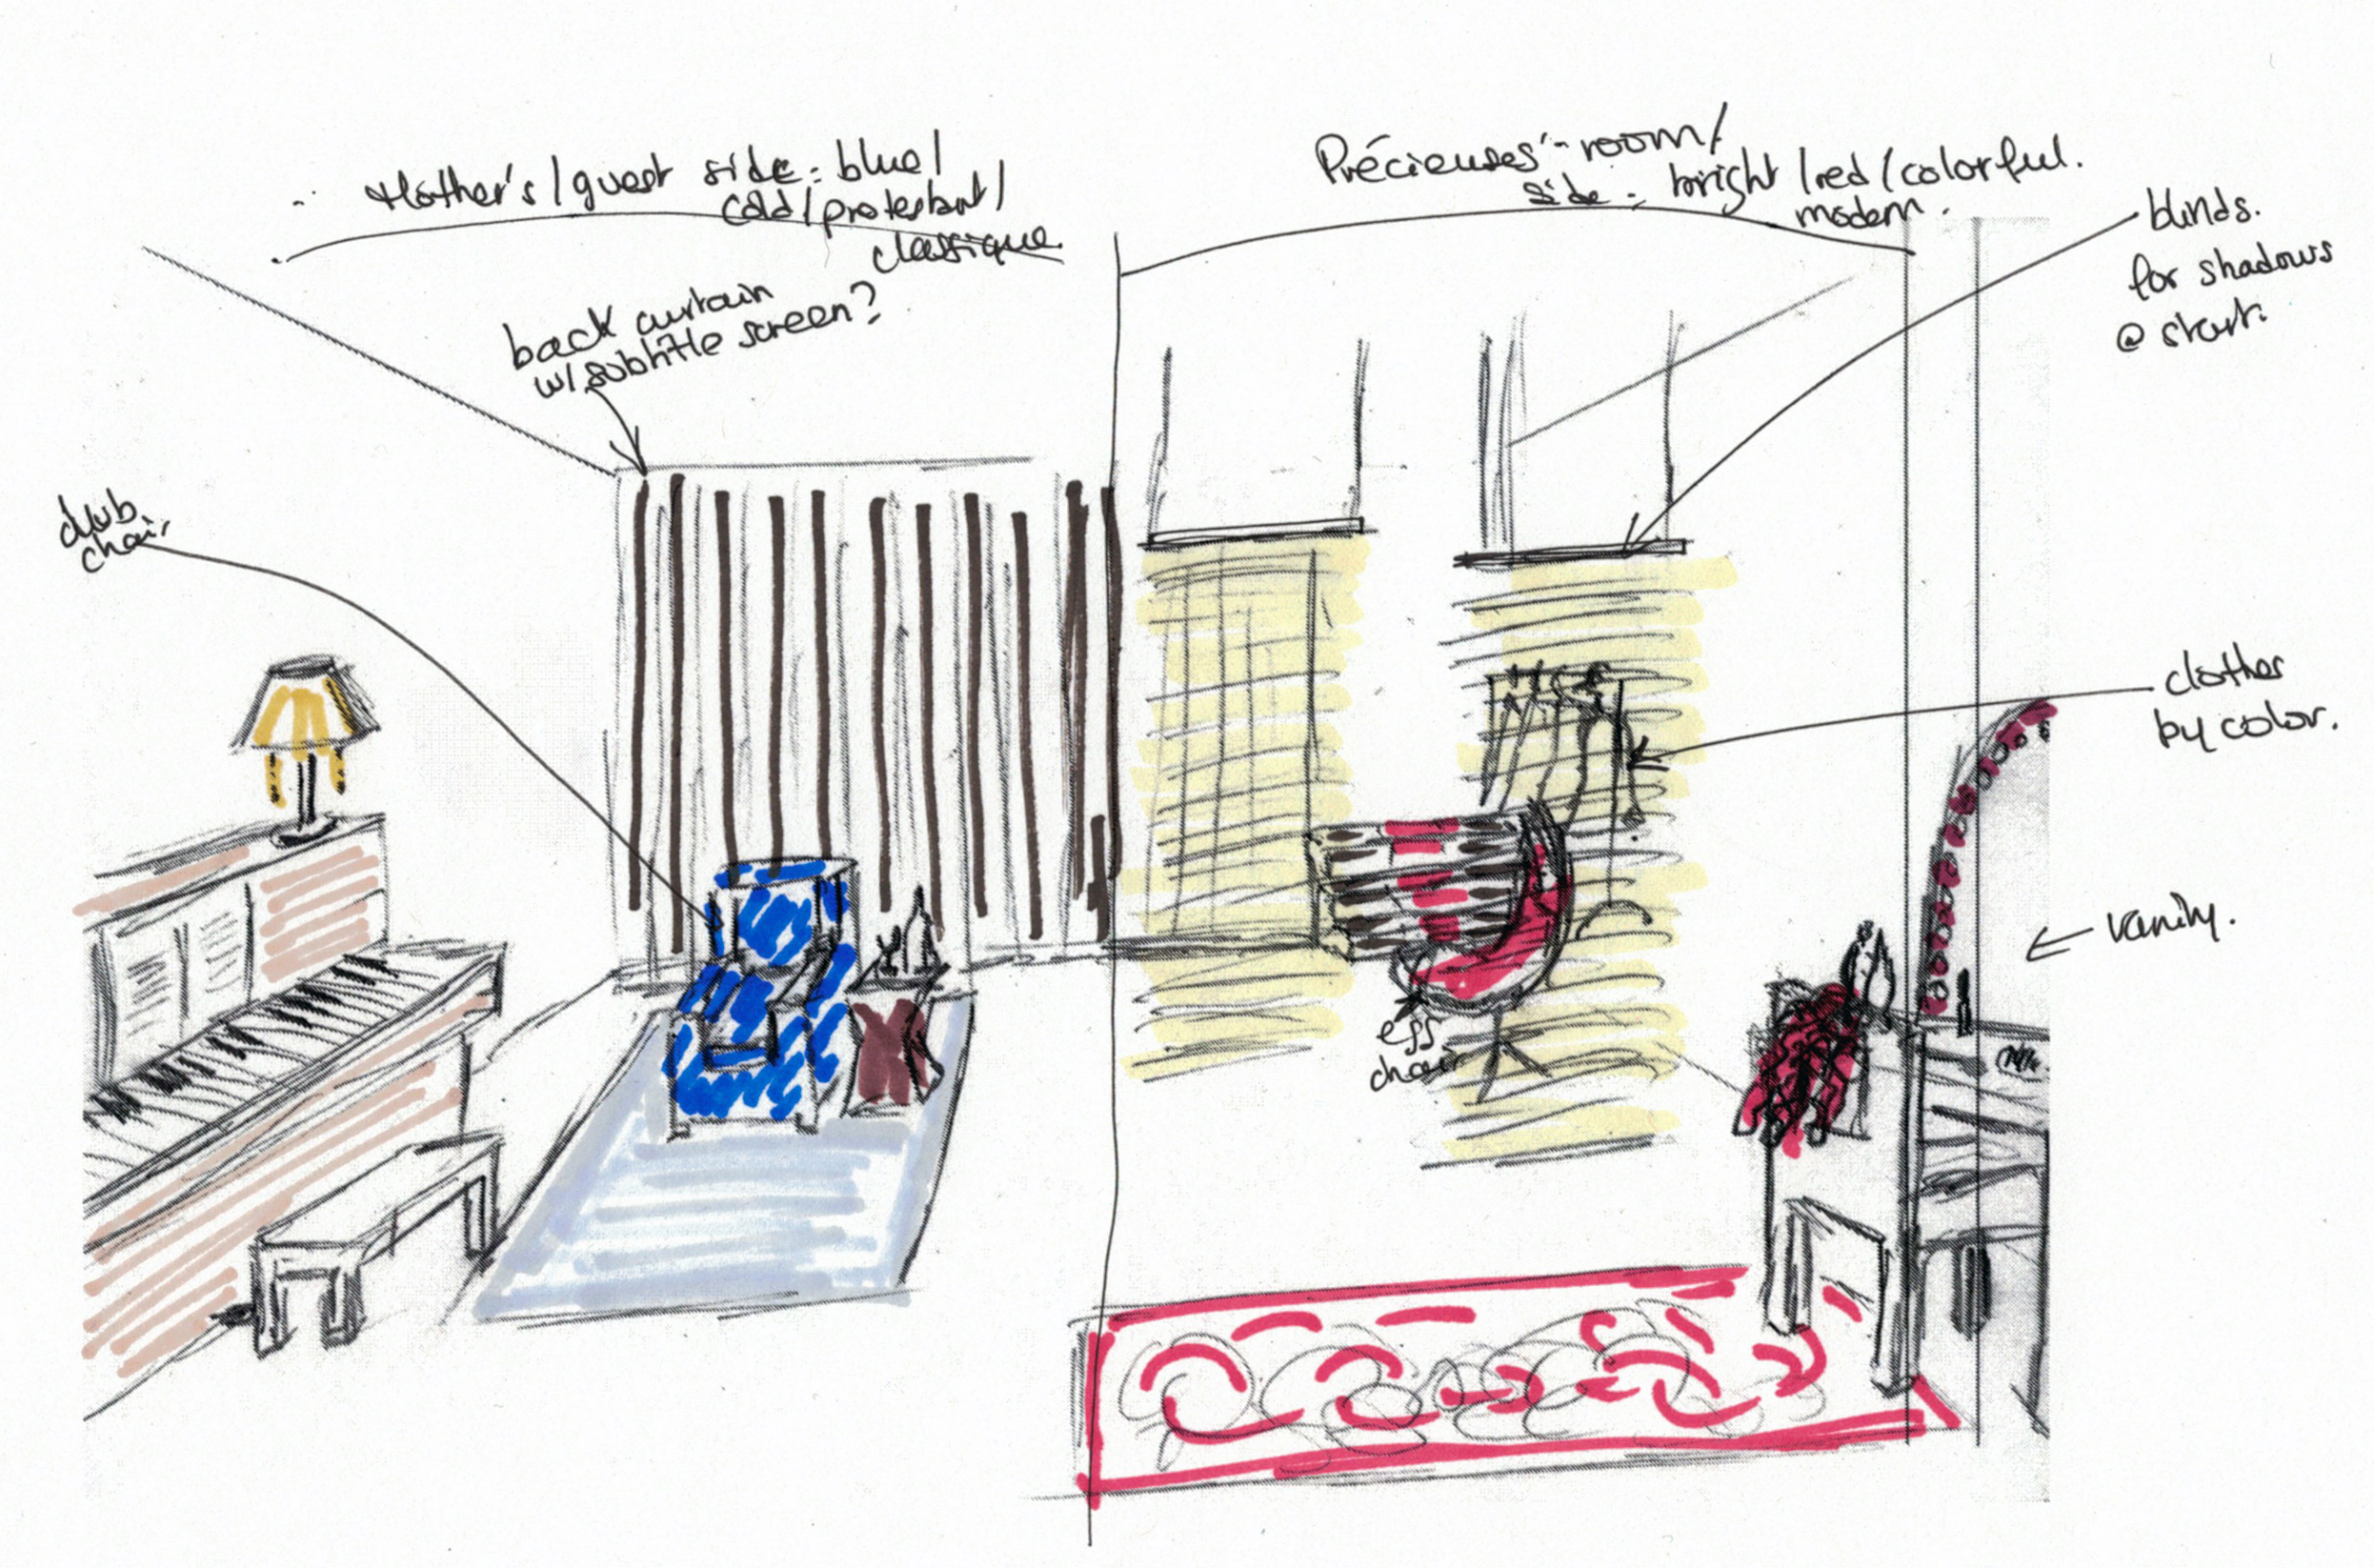 Mother's / guest side : blue /
cold / protestant /
classique.
Précieuses' room /
side : bright / red / colorful.
modern.
back curtain
w/ subtitle screen?
blinds.
for shadows
@ start.
club
chair
clothes
by color.
vanity.
egg
chair